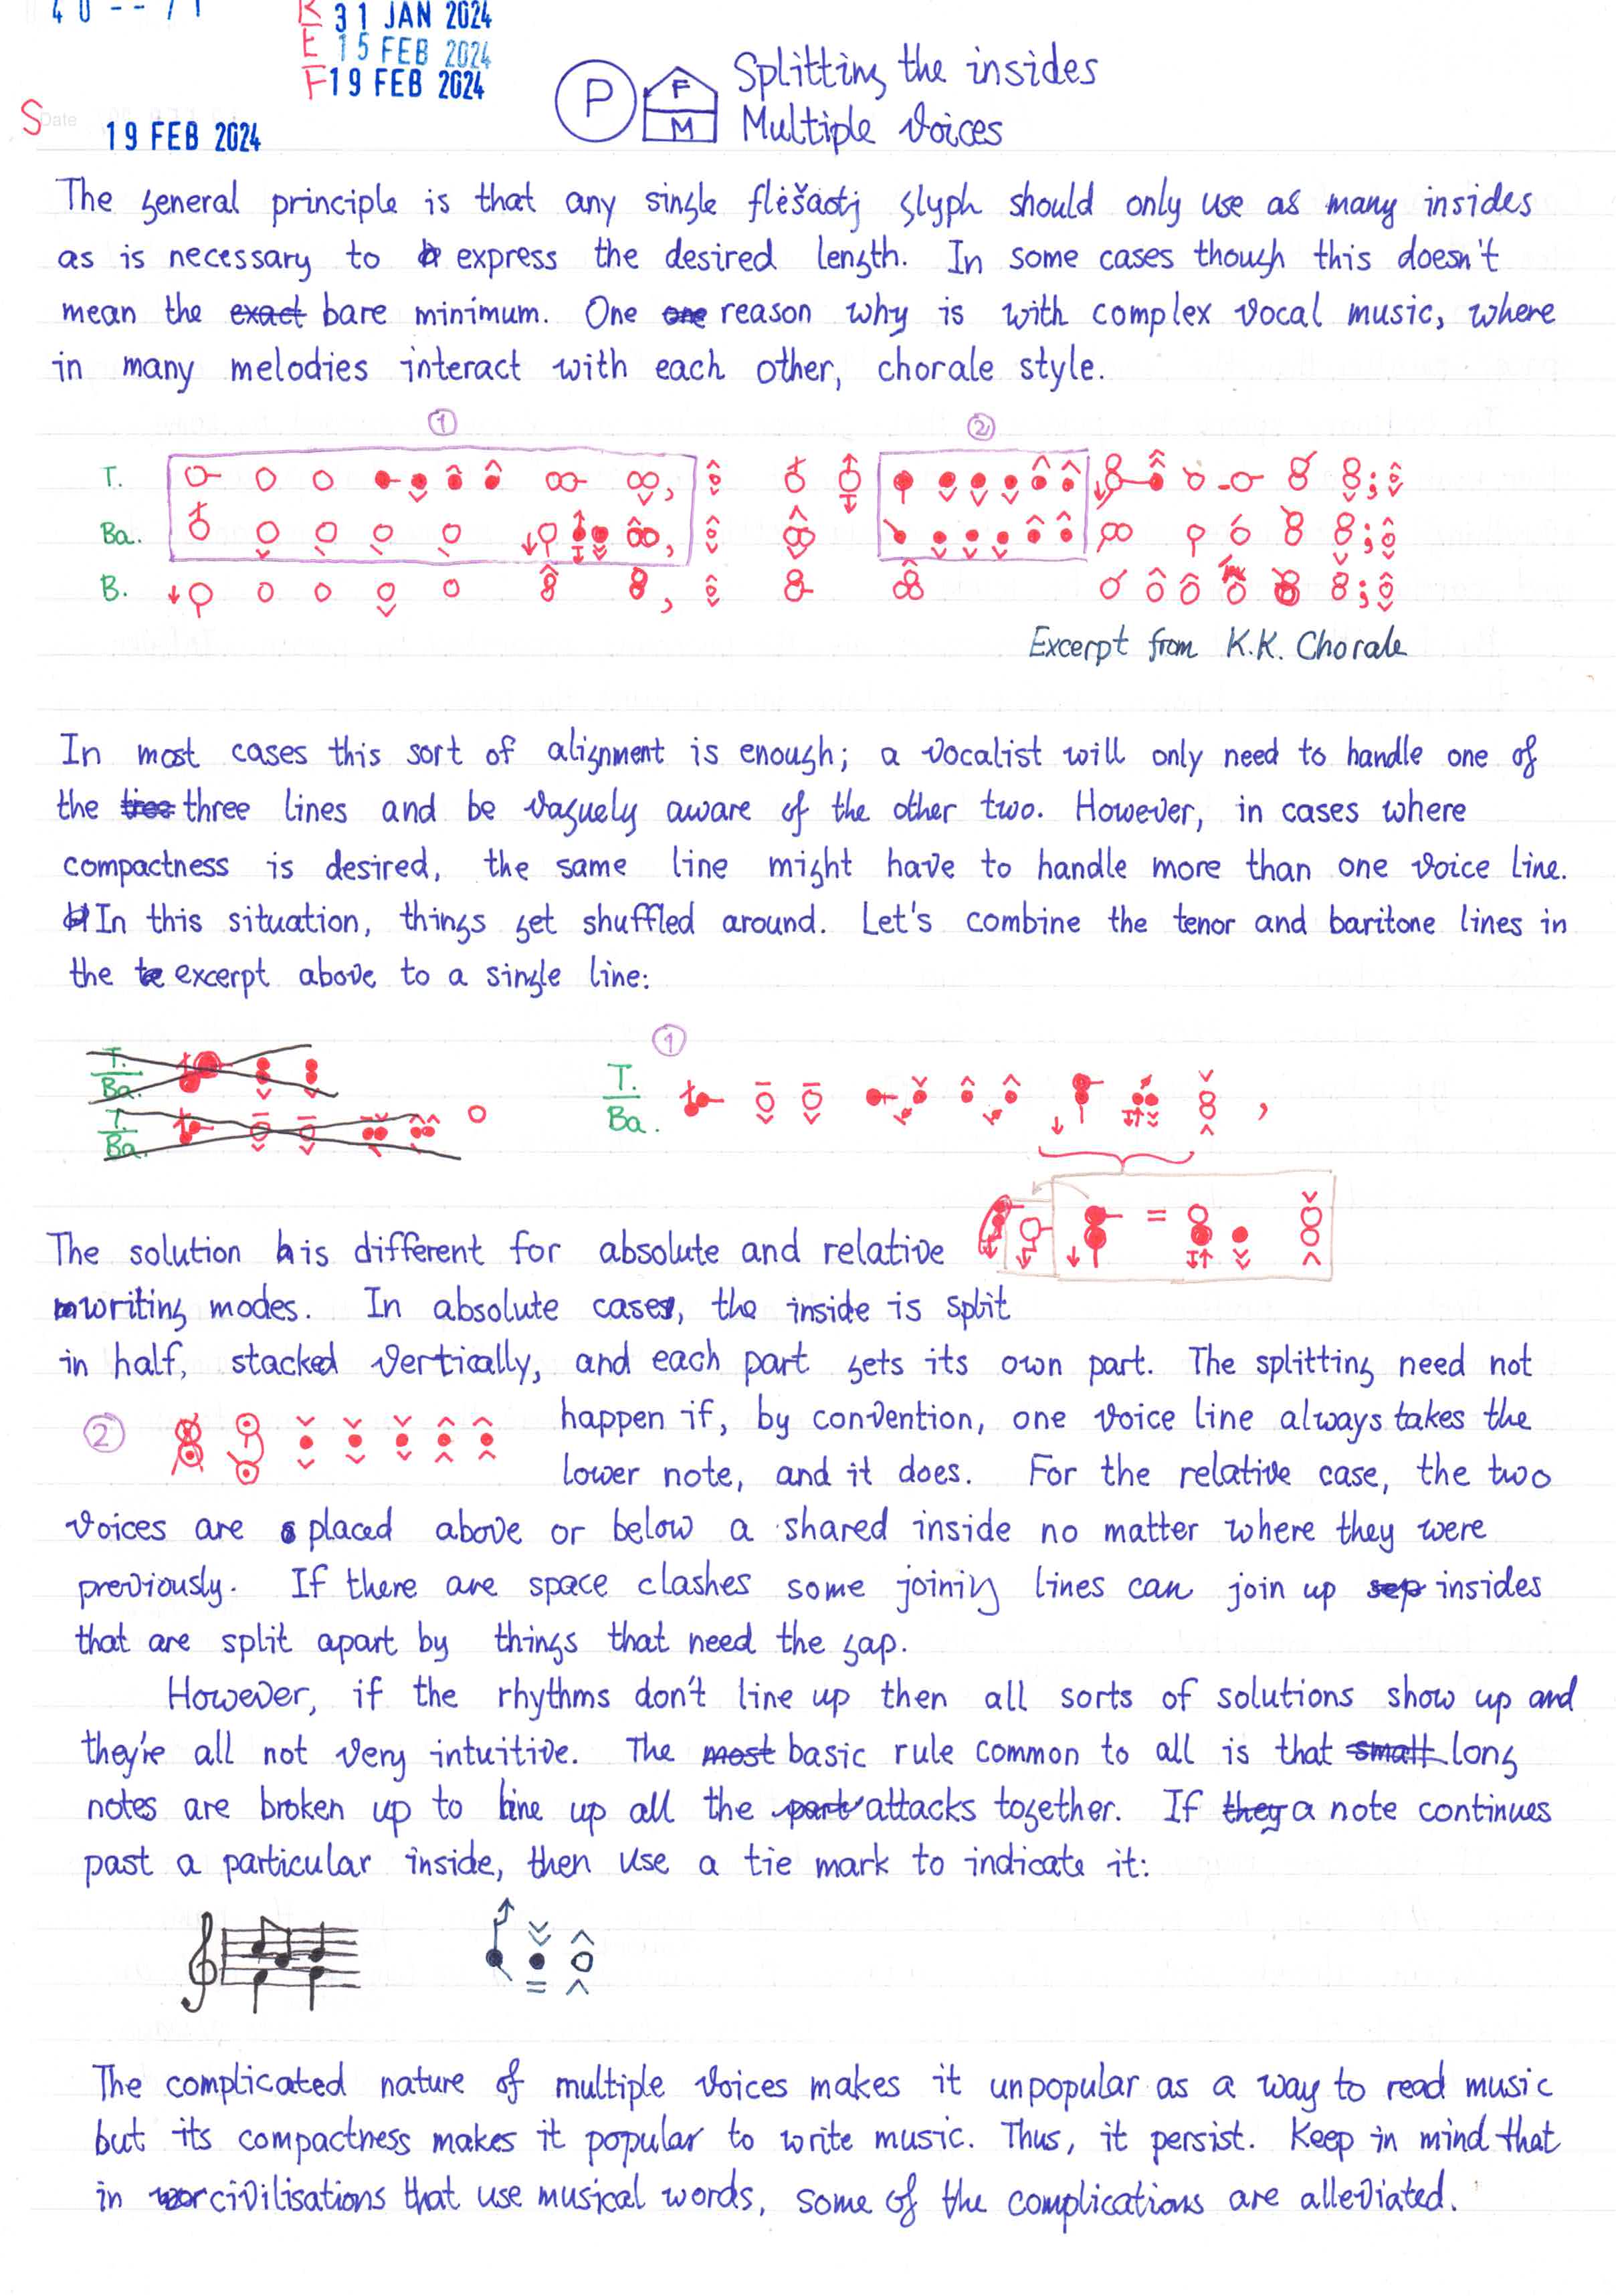 40 -- 71
R 31 JAN 2024
E 15 FEB 2024
F 19 FEB 2024
S Date
19 FEB 2024
P F M Splitting the insides
Multiple Voices
The general principle is that any single flėšaotj glyph should only use as many insides
as is necessary to express the desired length. In some cases though this doesn't
mean the exact bare minimum. One one reason why is with complex vocal music, where
in many melodies interact with each other, chorale style.
1 2
T.
Ba.
B.
Excerpt from K.K. Chorale
In most cases this sort of alignment is enough; a vocalist will only need to handle one of
the tree three lines and be vaguely aware of the other two. However, in cases where
compactness is desired, the same line might have to handle more than one voice line.
In this situation, things get shuffled around. Let's combine the tenor and baritone lines in
the te excerpt above to a single line:
1
T.
Ba.
T.
Ba.
T.
Ba.
The solution is different for absolute and relative
writing modes. In absolute cases, the inside is split
in half, stacked vertically, and each part gets its own part. The splitting need not
2 happen if, by convention, one voice line always takes the
lower note, and it does. For the relative case, the two
voices are placed above or below a shared inside no matter where they were
previously. If there are space clashes some joining lines can join up sep insides
that are split apart by things that need the gap.
However, if the rhythms don't line up then all sorts of solutions show up and
they're all not very intuitive. The most basic rule common to all is that small long
notes are broken up to line up all the part attacks together. If they a note continues
past a particular inside, then use a tie mark to indicate it:
The complicated nature of multiple voices makes it unpopular as a way to read music
but its compactness makes it popular to write music. Thus, it persist. Keep in mind that
in wor civilisations that use musical words, some of the complications are alleviated.